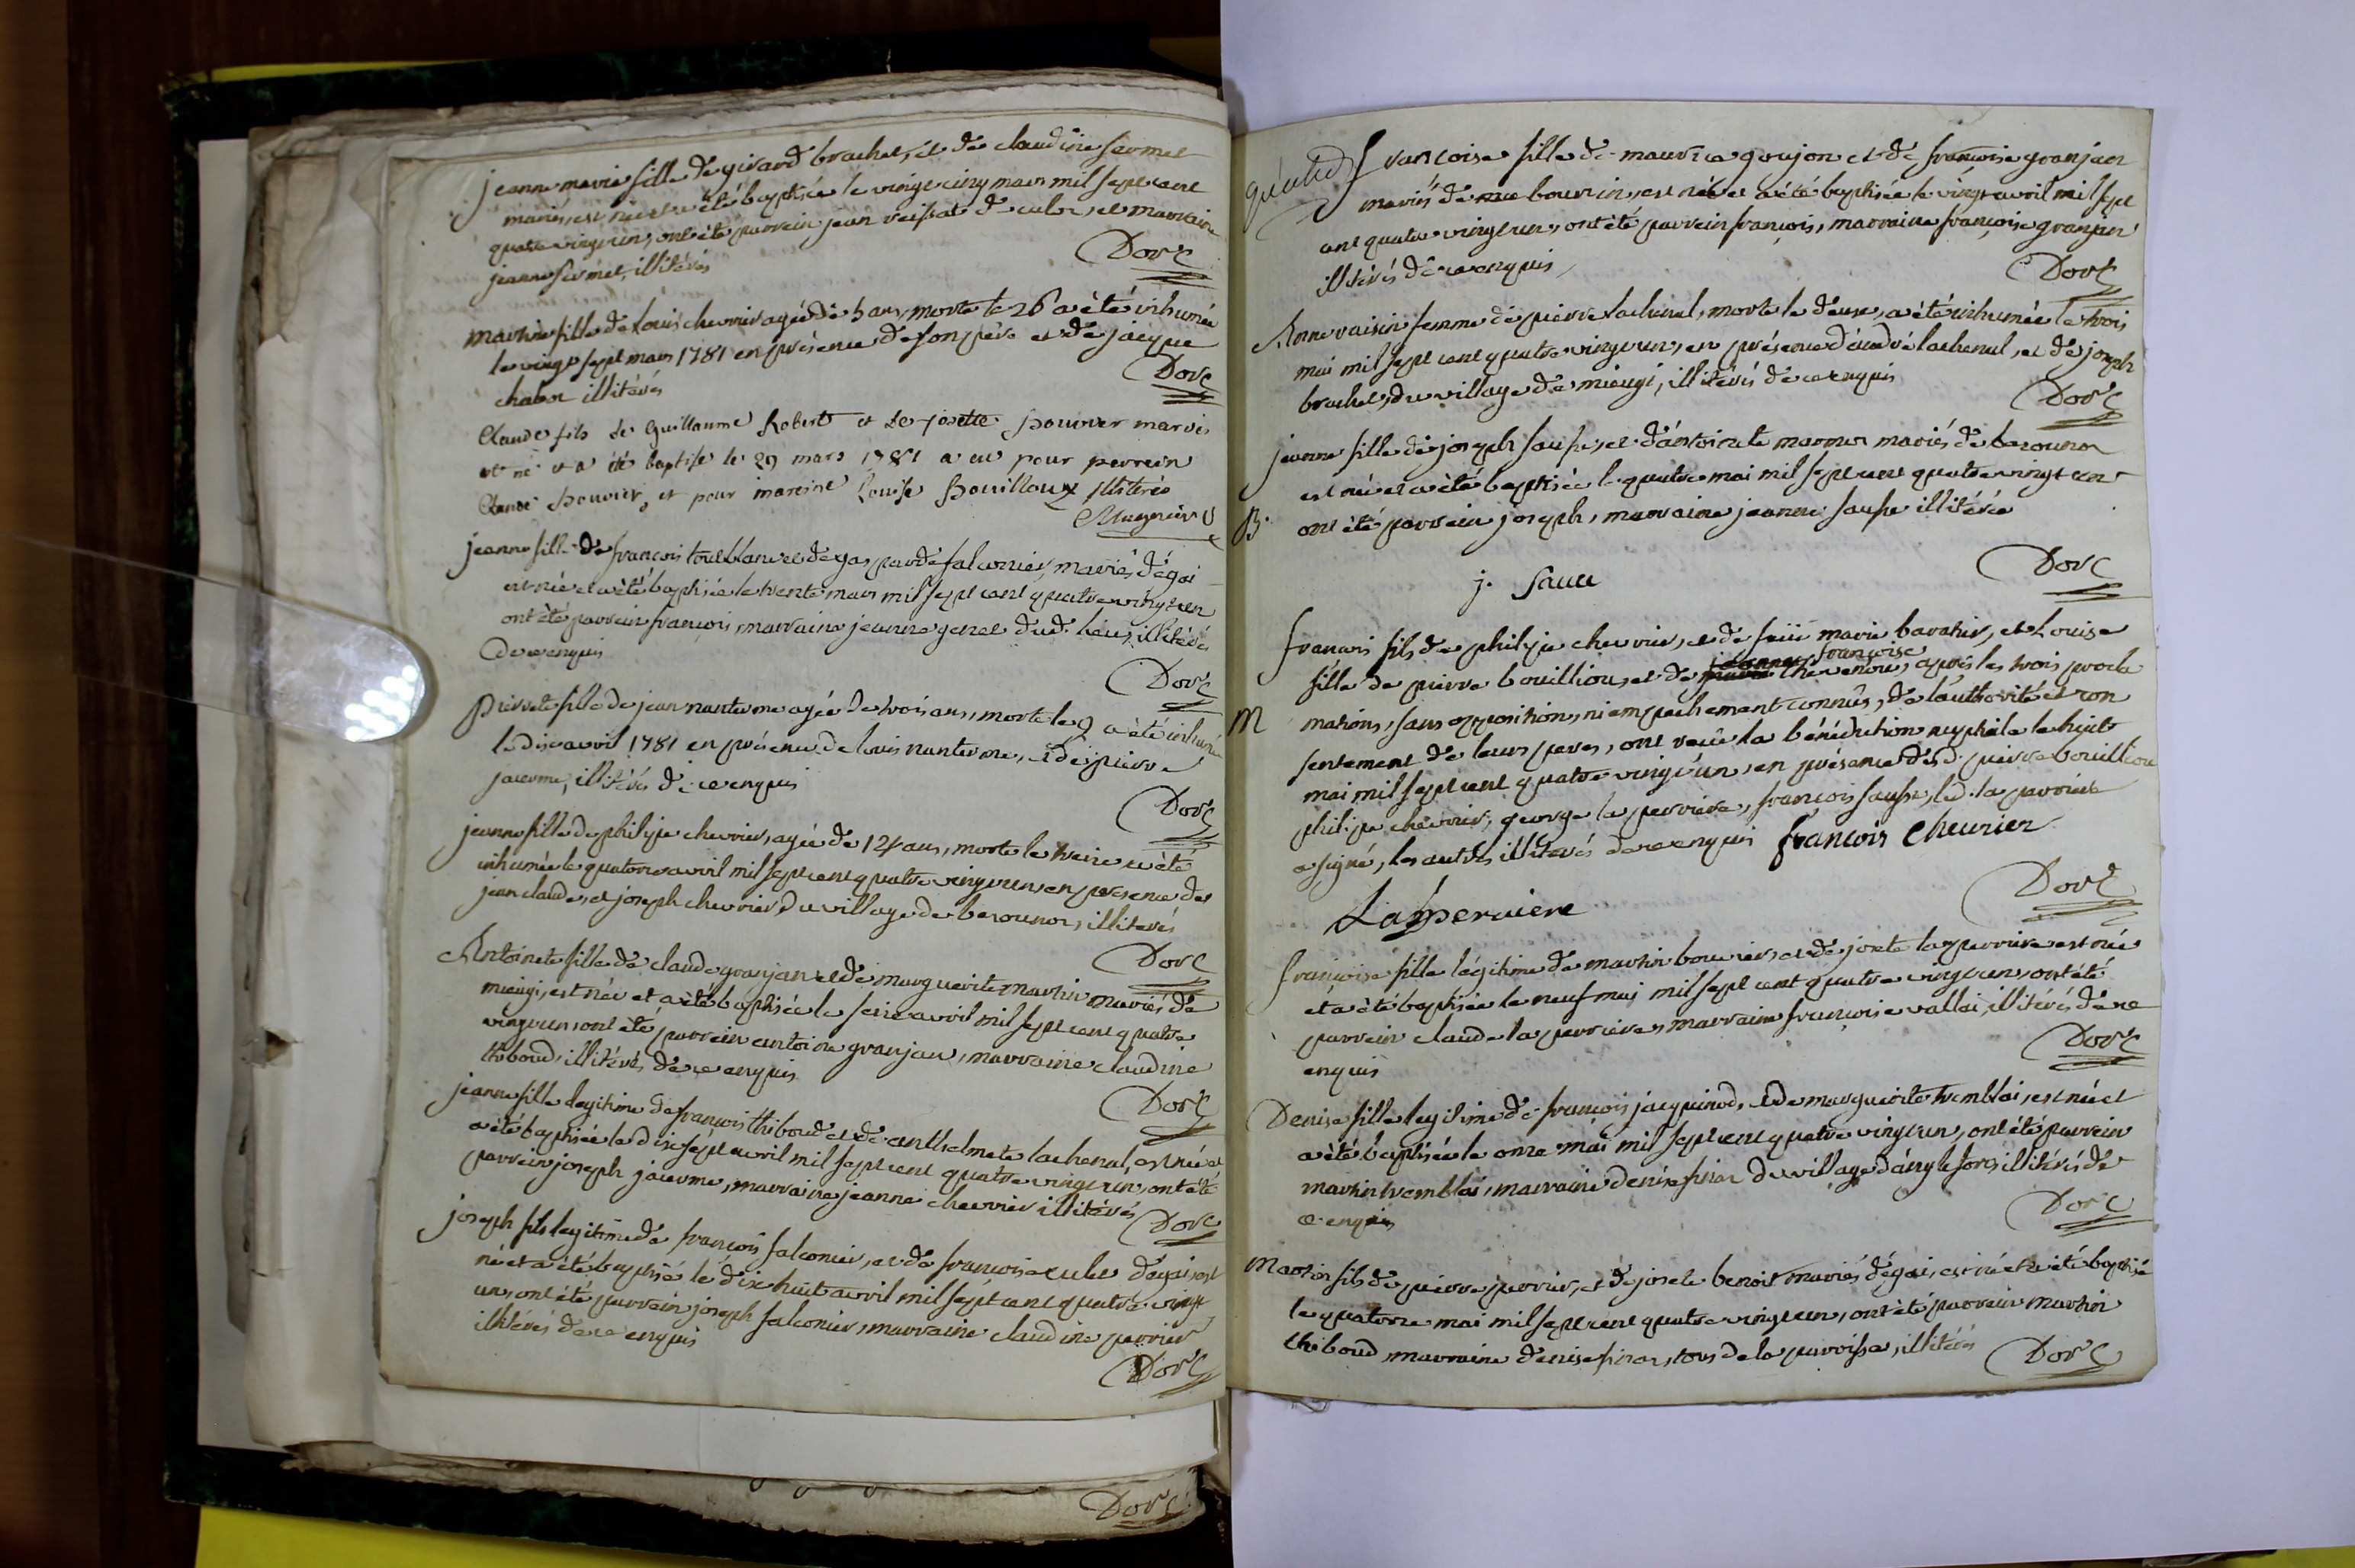 jeanne marie fille de girard brachet, et de claudine fermet
mariés, est née et a été baptisée le vingt cinq mars mil sept cent
quatre vingt un, ont été parrein jean veissat de culoz, et marraine
jeanne fermet, illitérés
Dorc
martine fille de Louis chevrier agée de 5 ans, morte le 26 a été inhumée
le vingt sept mars 1781 en présence de son père et de jacque
chabot illitérés
Dorc
Claude fils de Guillaume Robert et de josette Bouvier mariés
est né et a été baptisé le 29 mars 1781 a eu pour parrein
Claude Bouvier, et pour mareine Louise Bouilloux illiterés
jeanne fille de françois toulblanc et de gasparde falconier, mariés d'égoi
est née et a été baptisée le trente mars mil sept cent quatre vingt un
ont été parrein françois, marraine jeanne genet dud. lieu, illitérés
de ce enquis
Dorc
pierrete fille de jean nanterme agée de trois ans, morte le 9 a été inhumée
le dix avril 1781 en présence de louis nanterme, et de pierre
jacerme, illitérés de ce enquis
Dorc
jeanne fille de philipe chevrier, agée de 12 ans, morte le treize a été
inhumée le quatorze avril mil sept cent quatre vingt un en présence de
jean claude, et joseph chevrier, du village de besounor, illiterés
Dorc
Antoinete fille de claude granjan et de marguerite martin mariés de
mieugi, est née et a été baptisée le seize avril mil sept cent quatre
vingt un, ont été parrein antoine granjan, marraine claudine
thiboud, illitérés de ce enquis
Dorc
jeanne fille legitime de françois thiboud et de anthelmete lachenal, est née et
a été baptisée le dix sept avril mil sept cent quatre vingt un, ont été
parrein joseph jacerme, marraine jeanne chevrier illitérés
Dorc
joseph fils legitime de françois falconier, et de françoise culet d'égoi, est
né et a été baptisé le dix huit avril mil sept cent quatre vingt
un, ont été parrein joseph falconier, marraine claudine perrier
illitérés de ce enquis
Dorc
Dorc
françoise fille de maurice goujon et de françoise granjan
mariés de bourrin, est née et a été baptisée le vingt avril mil sept
cent quatre vingt un, ont été parrein françois, marraine françoise granjan
illitérés de ce enquis
Dorc
Anne vaisin femme de pierre lachenal, morte le deux, a été inhumée le trois
mai mil sept cent quatre vingt un, en présence d'andré lachenal, et de joseph
brachet, du village de mieugi, illitérés de ce enquis
Dorc
jeanne fille de joseph sausse, et d'antoinete marmor mariés de besounor
est née et a été baptisée le quatre mai mil sept cent quatre vingt un
B. ont été parrein joseph, marraine jeanne sausse illitérée
Dorc
j. sauce
françois fils de philipe chevrier, et de feüe marie baratier, et Louise
françoise
fille de pierre bouilliou, et de thevenon, après les trois procla
M mations, sans opposition, ni empechement connûs, de l'authorité et con
sentement de leurs peres, ont reçu la bénédiction nuptiale le huit
mai mil sept cent quatre vingt un, en présence desd. pierre bouilliou
philipe chevrier, george la perriere, françois sausse, led. la perriere
a signé, les autres illiterés de ce enquis françois cheurier
Dorc
Laperriere
françoise fille légitime de martin bouvier, et de josete la perriere est née
et a été baptisée le neuf mai mil sept cent quatre vingt un, ont été
parrein claude la perriere, marraine françoise vallai, illitérés de ce
enquis
Dorc
Denise fille legitime de françois jacquinod, et de marguerite tremblai, est née et
a été baptisée le onze mai mil sept cent quatre vingt un, ont été parrein
martin tremblai, marraine denise du village d'anglefort, illitérés de
ce enquis
Dorc
Martin fils de pierre perrier, et de josete benoit mariés d'égoi, est né et a été baptisé
le quatorze mai mil sept cent quatre vingt un, ont été parrein martin
thiboud, marraine denise tous de la paroisse, illitérés
Dorc